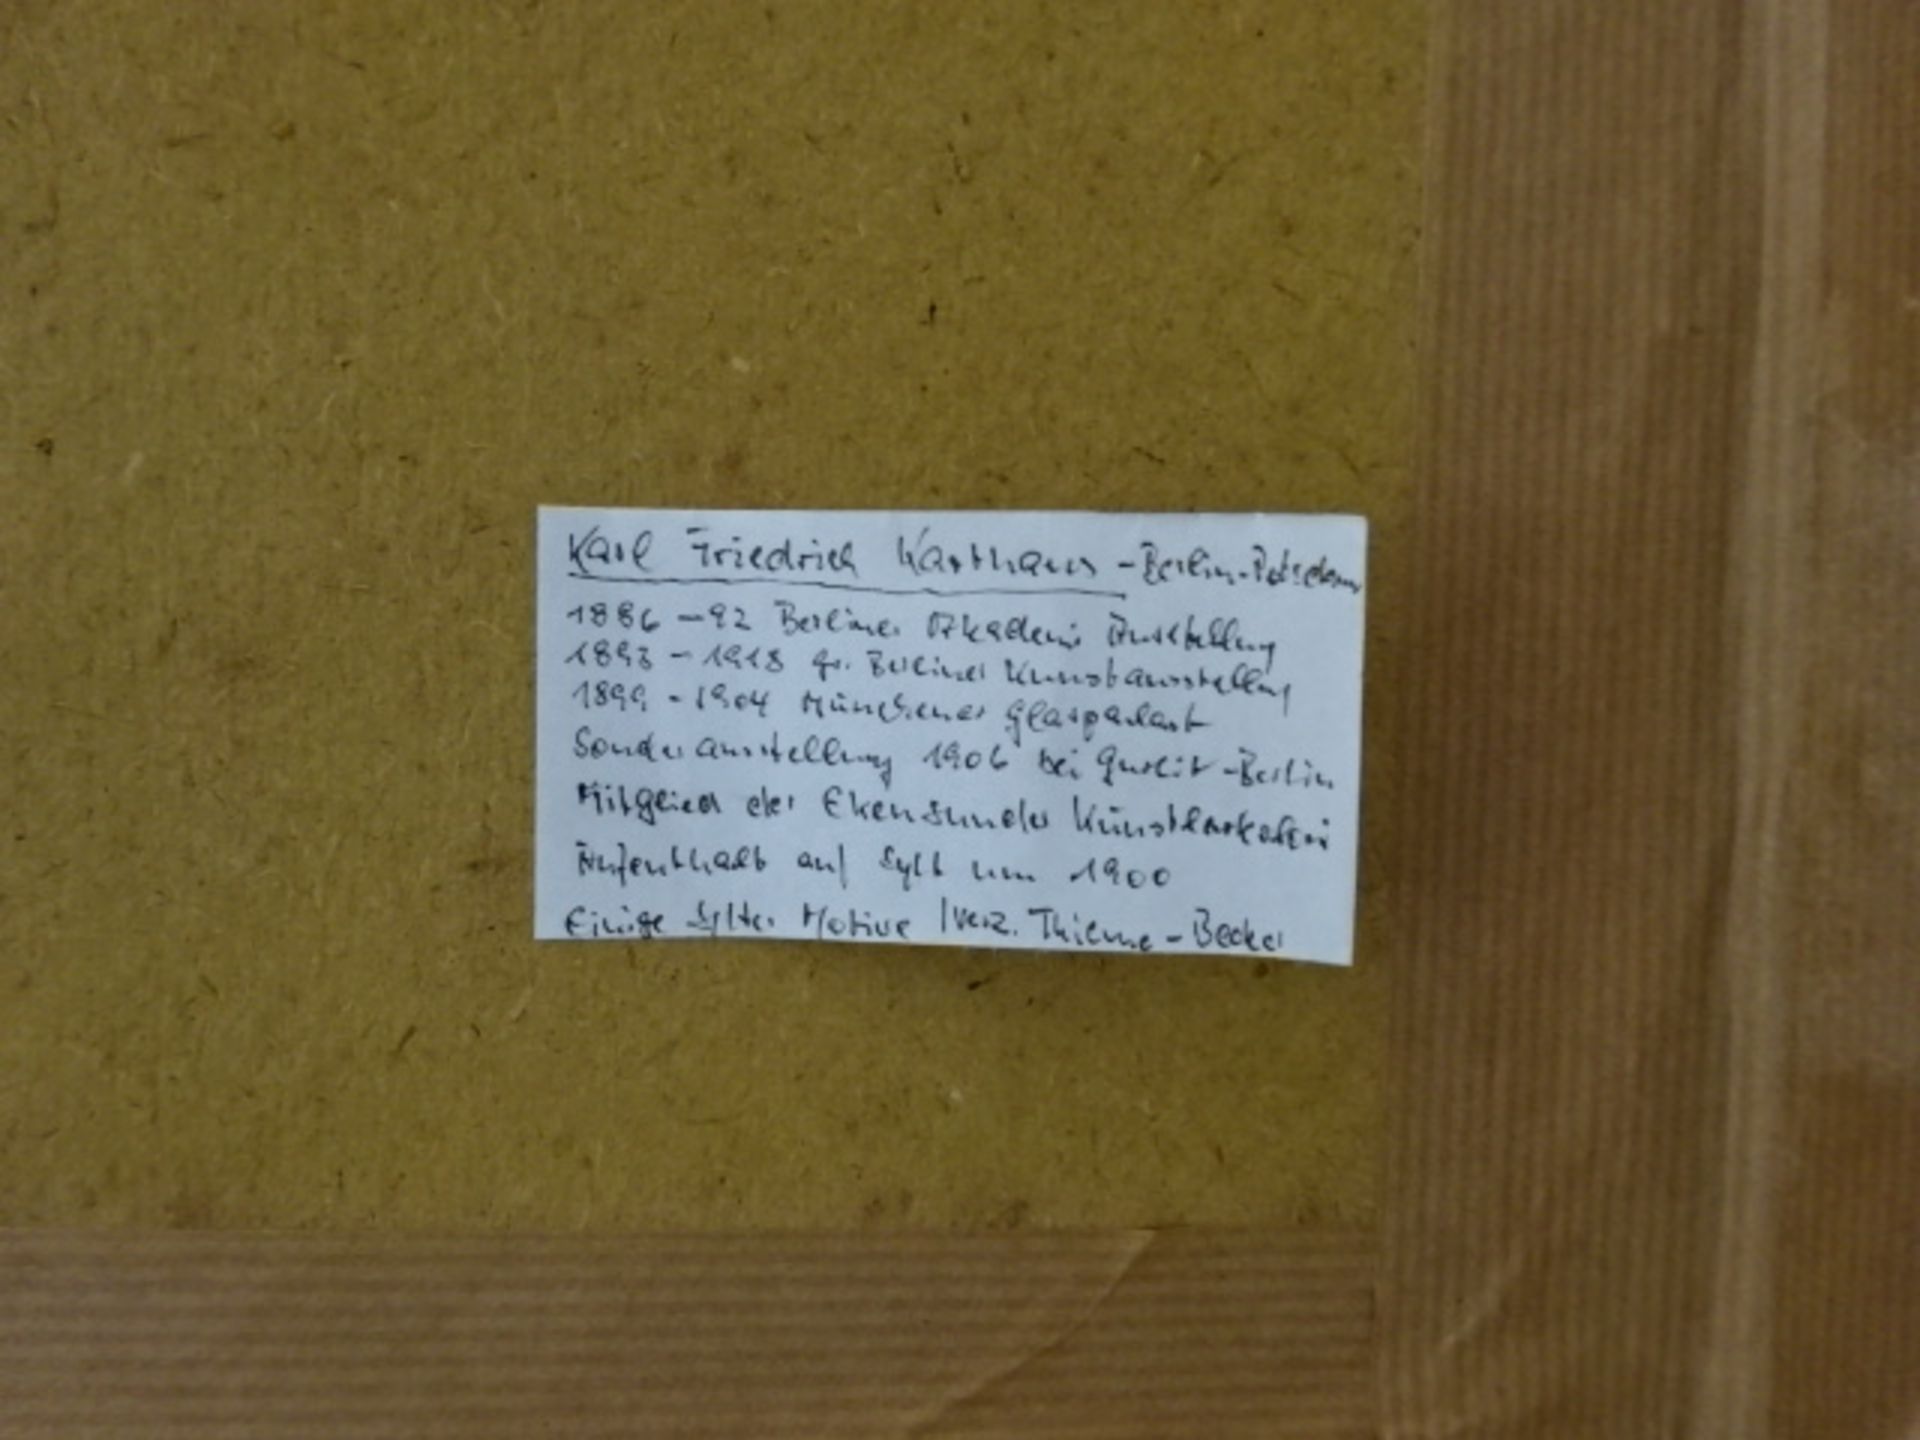 Karl Friedrich Karthaus - Berlin-Potsdam
1886 - 92 Berliner Akademie Ausstellung
1893 - 1918 gr. Berliner Kunstausstellung
1899 - 1904 Münchener Glaspalast
Sonderausstellung 1906 bei Gurlit - Berlin
Mitglied der Ekensunder Künstlerkolonie
Aufenthalt auf Sylt um 1900
Einige Sylter Motive / verz. Thieme - Becker